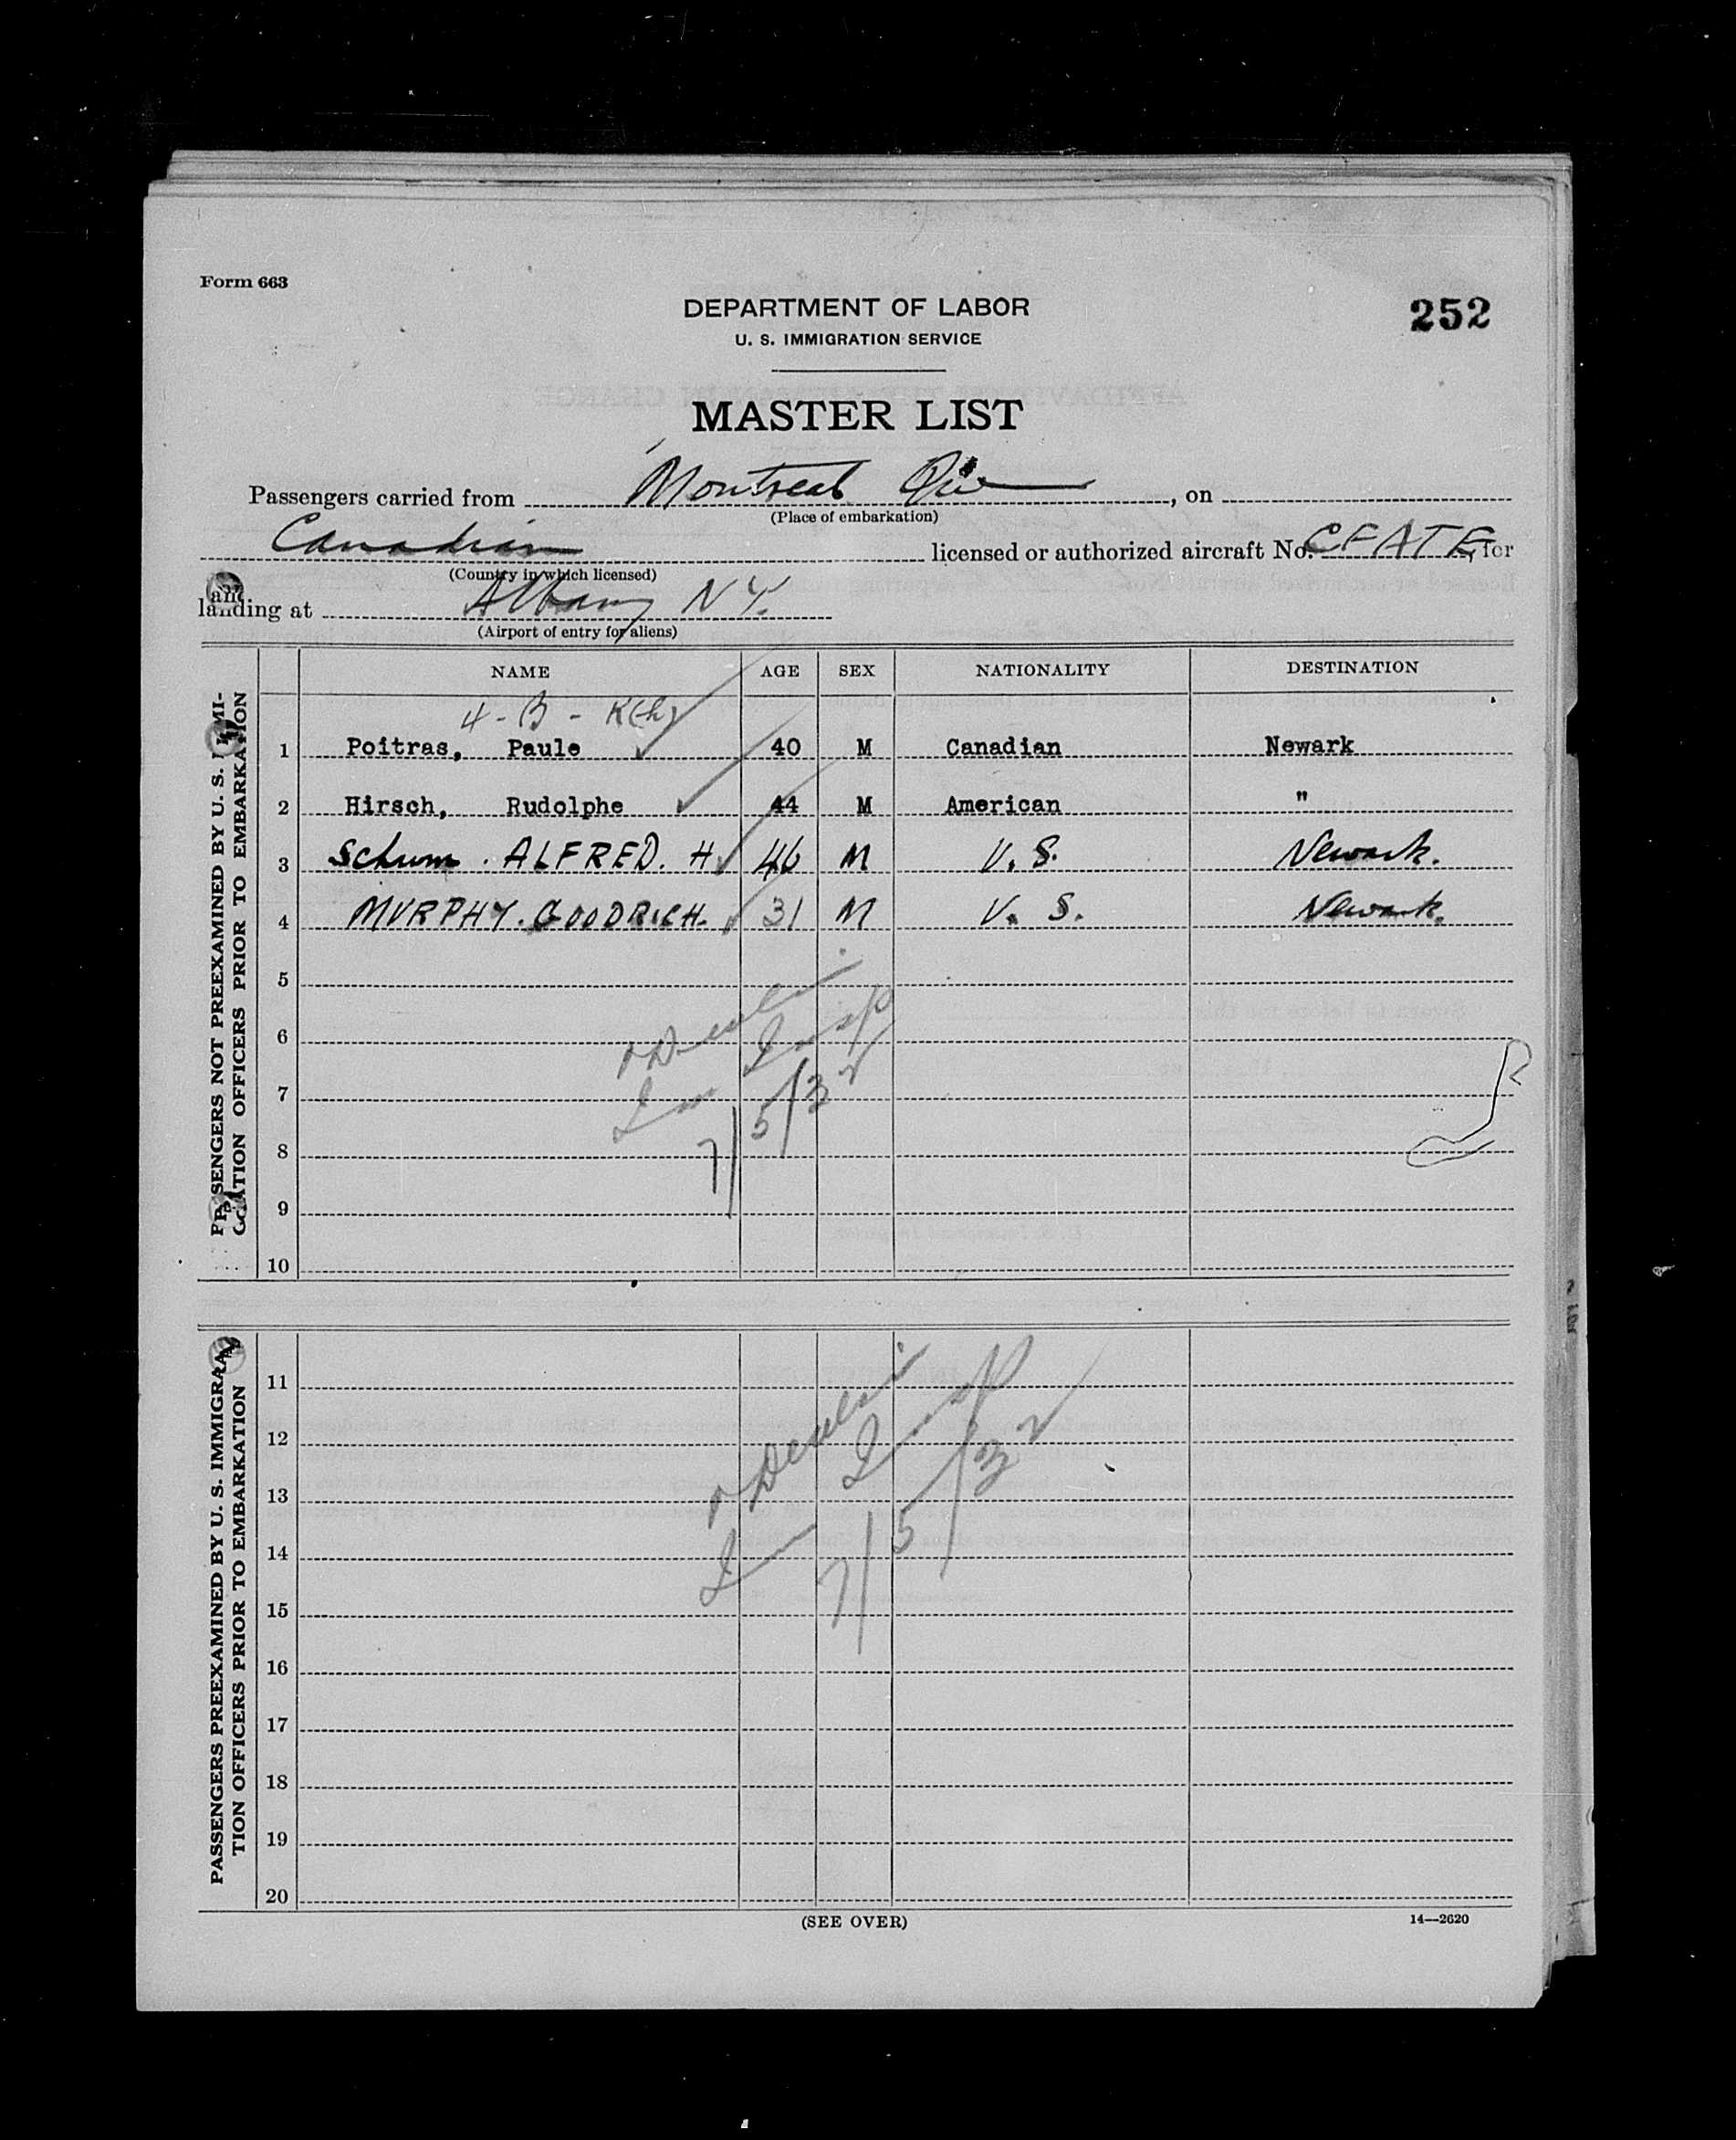 Form 663
DEPARTMENT OF LABOR
252
U. S. IMMIGRATION SERVICE
MASTER LIST
Passengers carried from Montreal Que, on
Canadian licensed or authorized aircraft No. CFATE, for
(Place of embarkation)
(Country in which licensed)
landing at Albany N Y.
(Airport of entry for aliens)
PASSENGERS NOT PREEXAMINED BY U. S. IMMI-
GRATION OFFICERS PRIOR TO EMBARKATION
NAME AGE SEX NATIONALITY DESTINATION
4 - B - K(h)
1 Poitras, Paule 40 M Canadian Newark
2 Hirsch, Rudolphe 44 M American "
3 Schum. ALFRED. H. 46 M U. S. Newark.
4 MURPHY. GOODRICH. 31 M U. S. Newark.
5
6
Imm Insp
7
7/5/32
8
9
10
PASSENGERS PREEXAMINED BY U. S. IMMIGRA-
TION OFFICERS PRIOR TO EMBARKATION
11
12
13
Imm Insp
14
7/5/32
15
16
17
18
19
20
(SEE OVER)
14—2620